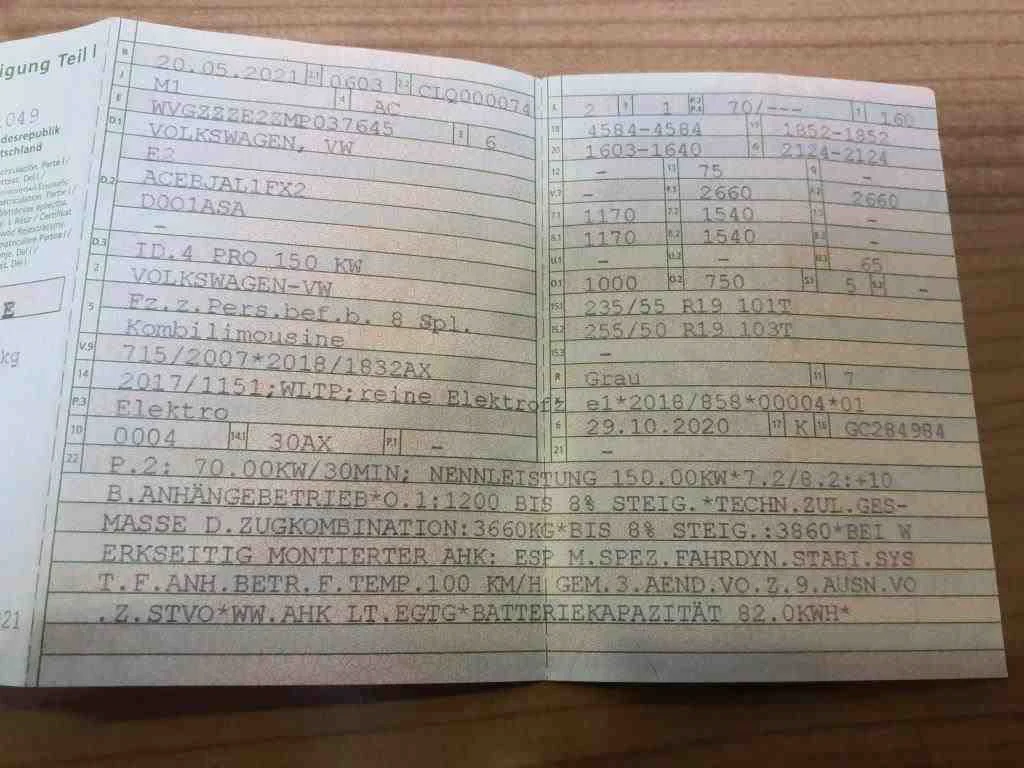 igung Teil I
049
desrepublik
tschland
E
kg
021
B 20.05.2021 2.1 0603 2.2 CLQ000074
J M1 4 AC
E WVGZZZE2ZMP037645 3 6
D.1 VOLKSWAGEN, VW
E2
D.2 ACEBJAL1FX2
D001ASA
-
D.3 ID.4 PRO 150 KW
2 VOLKSWAGEN-VW
5 Fz.z.Pers.bef.b. 8 Spl.
Kombilimousine
V.9 715/2007*2018/1832AX
14 2017/1151;WLTP;reine Elektrofz
P.3 Elektro
10 0004 14.1 30AX P.1 -
L 2 9 1 P.2 P.4 70/--- T 160
18 4584-4584 19 1852-1852
20 1603-1640 G 2124-2124
12 - 13 75 Q -
V.7 - F.1 2660 F.2 2660
7.1 1170 7.2 1540 7.3 -
8.1 1170 8.2 1540 8.3 -
U.1 - U.2 - U.3 65
O.1 1000 O.2 750 S.1 5 S.2 -
15.1 235/55 R19 101T
15.2 255/50 R19 103T
15.3 -
R Grau 11 7
K e1*2018/858*00004*01
6 29.10.2020 17 K 16 GC284984
21 -
22 P.2: 70.00KW/30MIN; NENNLEISTUNG 150.00KW*7.2/8.2:+10
B.ANHÄNGEBETRIEB*O.1:1200 BIS 8% STEIG.*TECHN.ZUL.GES-
MASSE D.ZUGKOMBINATION:3660KG*BIS 8% STEIG.:3860*BEI W
ERKSEITIG MONTIERTER AHK: ESP M.SPEZ.FAHRDYN.STABI.SYS
T.F.ANH.BETR.F.TEMP.100 KM/H GEM.3.AEND.VO.Z.9.AUSN.VO
.Z.STVO*WW.AHK LT.EGTG*BATTERIEKAPAZITÄT 82.0KWH*